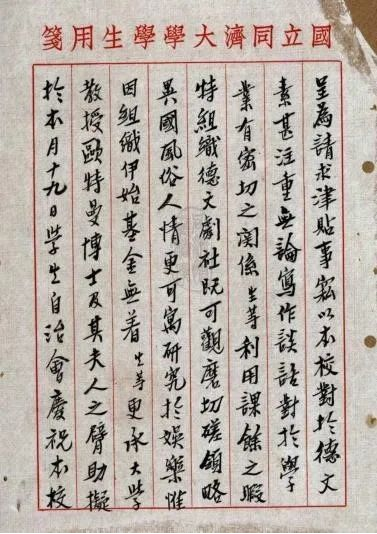 國立同濟大學學生用箋
呈為請求津貼事竊以本校對於德文
素甚注重無論寫作談話對於學
業有密切之関係生等利用課餘之暇
特組織德文劇社既可觀磨切磋領略
異國風俗人情更可寓研究於娛樂惟
因組織伊始基金無着生等更承大學
教授歐特曼博士及其夫人之臂助擬
於本月十九日學生自治會慶祝本校